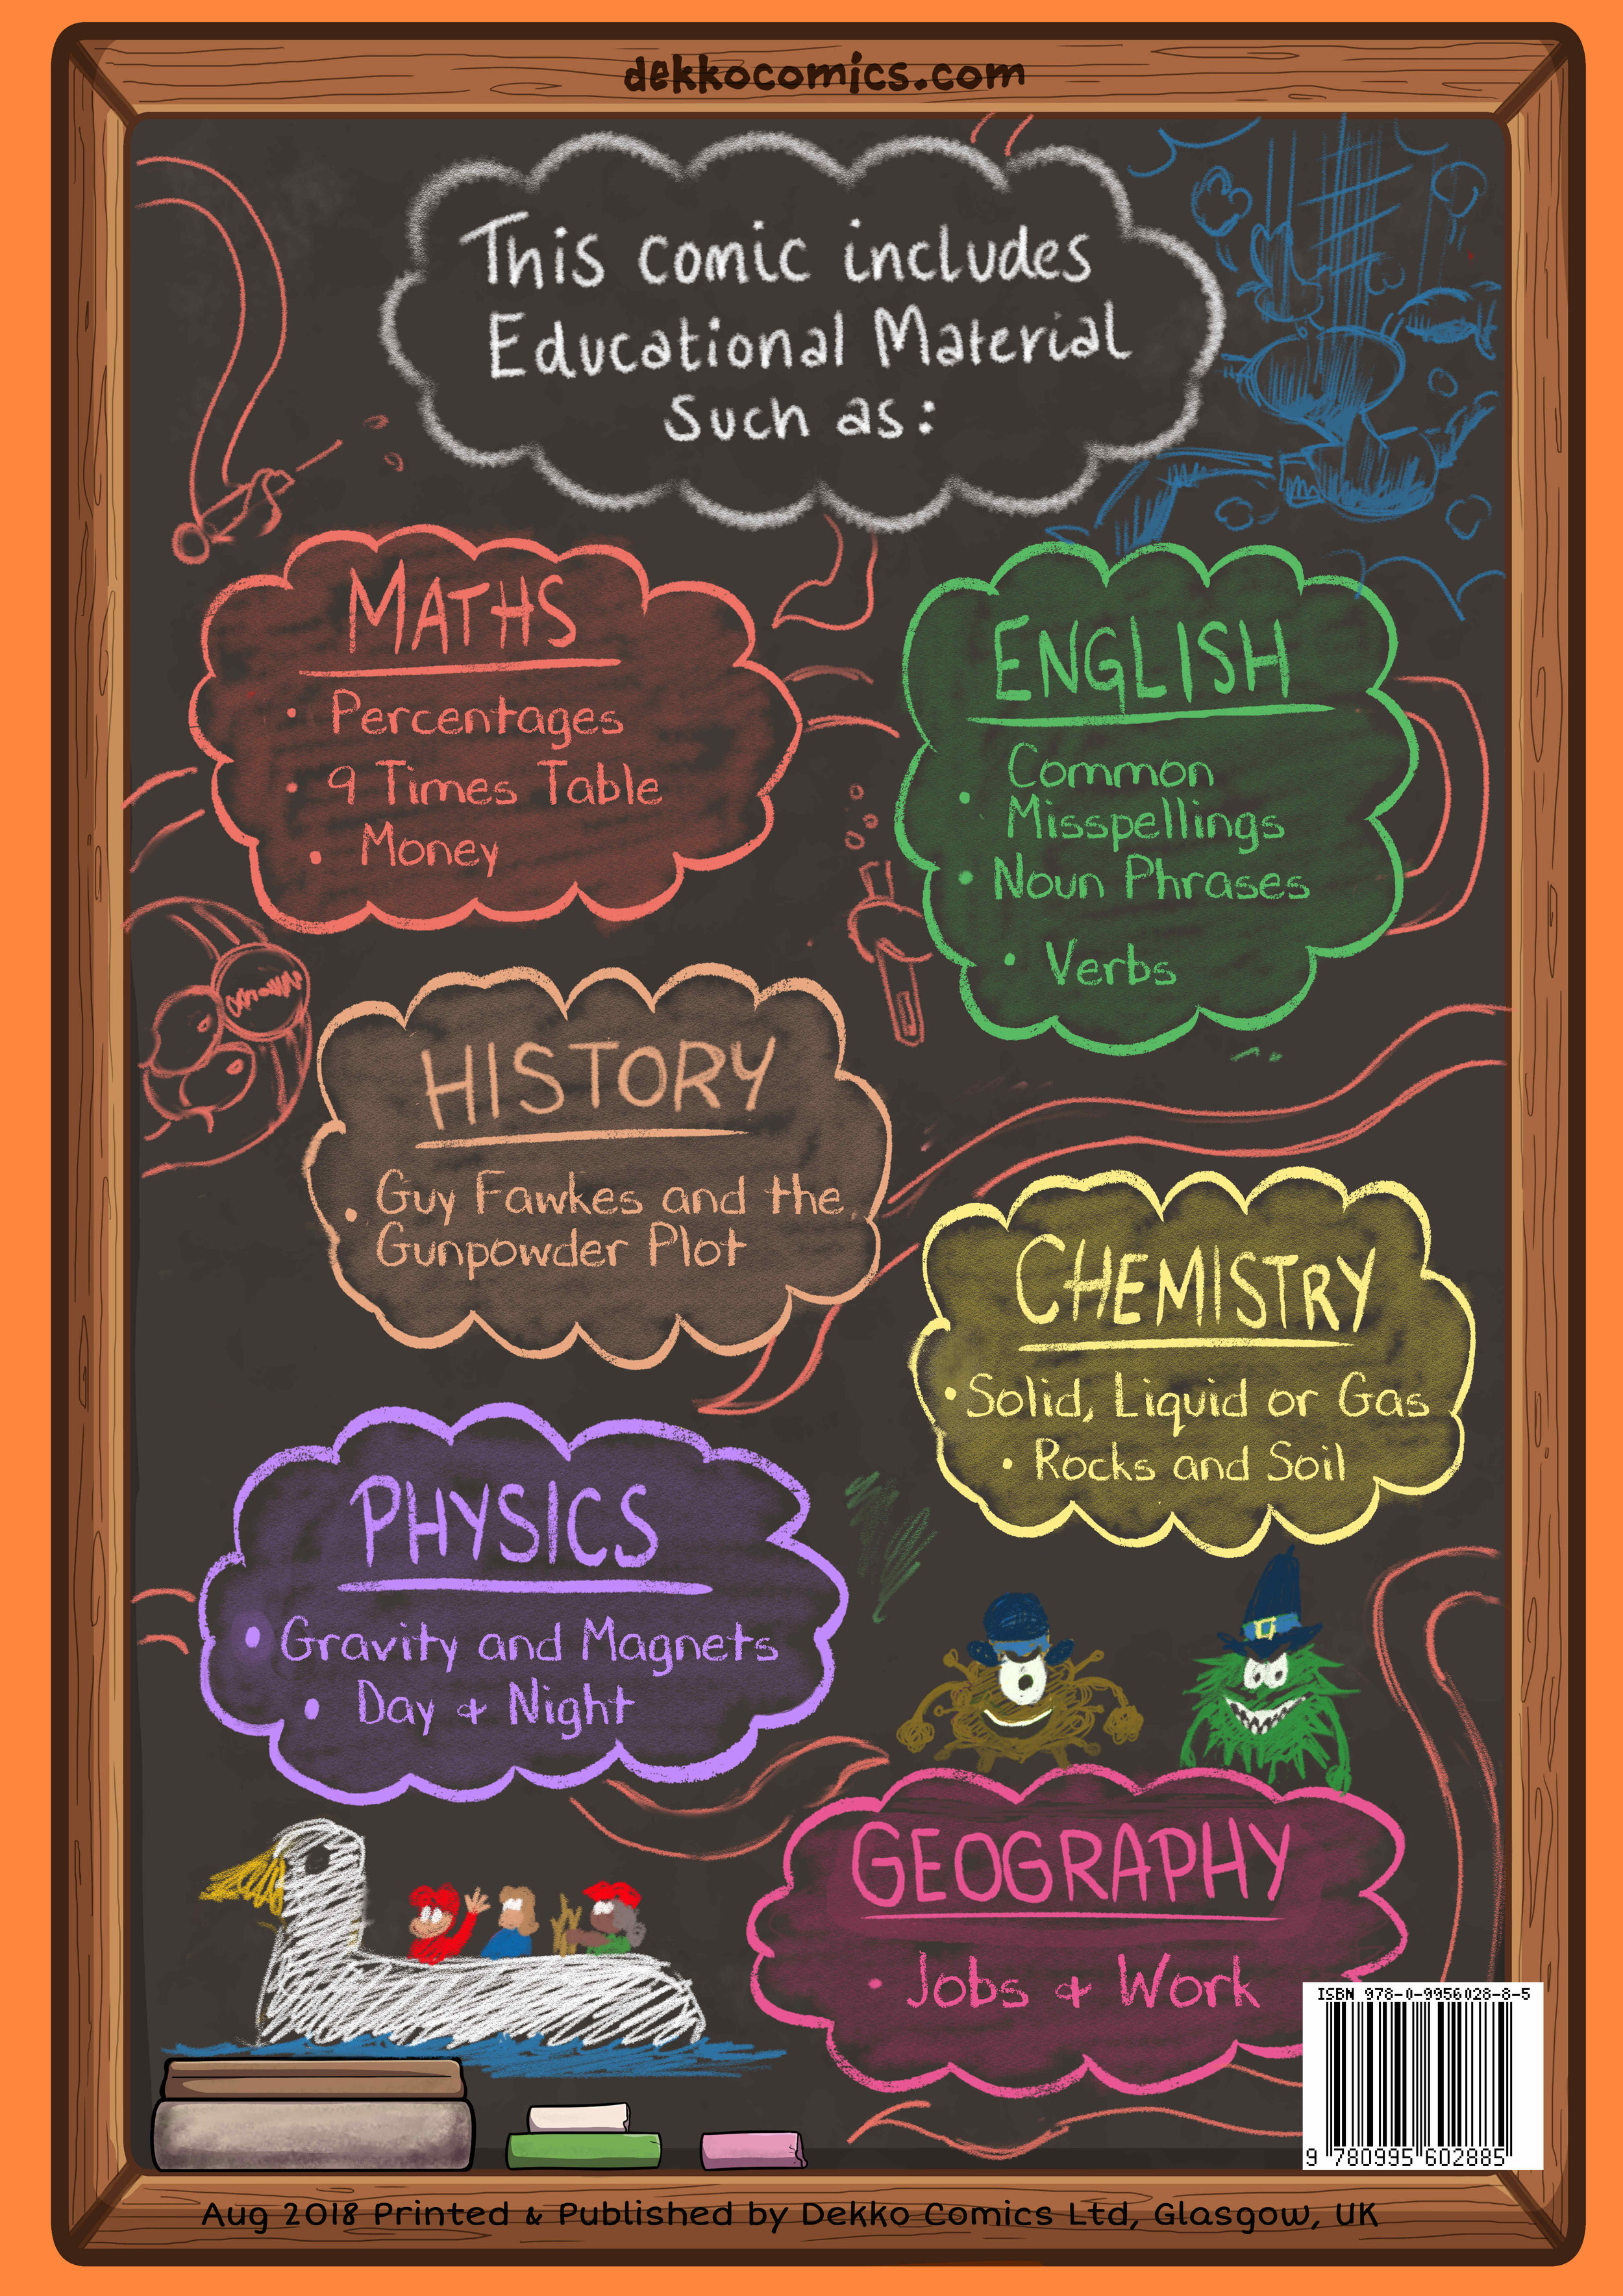 dekkocomics.com
This comic includes
Educational Material
Such as:
MATHS
• Percentages
• 9 Times Table
• Money
ENGLISH
• Common
Misspellings
• Noun Phrases
• Verbs
HISTORY
• Guy Fawkes and the
Gunpowder Plot
CHEMISTRY
• Solid, Liquid or Gas
• Rocks and Soil
PHYSICS
• Gravity and Magnets
• Day & Night
GEOGRAPHY
• Jobs & Work
ISBN 978-0-9956028-8-5
9 780995 602885
Aug 2018 Printed & Published by Dekko Comics Ltd, Glasgow, UK